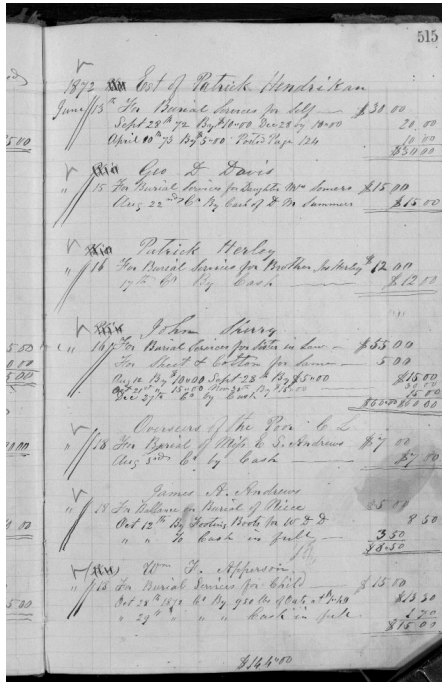 515
1872 Est of Patrick Hendrikan
June 13th For Burial Services for Self $30.00
Sept 28th 72 By $10.00 Dec 28 by 10.00 20.00
April 10th 73 By $5.00 Posted Page 124 10.00
$30.00
Geo D. Davis
" 15 For Burial Services for Daughter Mrs Somers $15.00
Aug 22nd Cr By Cash of D M Summers $15.00
Patrick Herley
" 16 For Burial Services for Brother Jno Herley $12.00
17th Cr By Cash $12.00
John Sherry
" 16 For Burial Services for Sister in Law $55.00
For Sheet & Cotton for Same 5.00
Aug 12 By $10.00 Sept 28th By $5.00 $15.00
Oct 21st " 15.00 Nov 20th By 15.00 30.00
Dec 27th Cr by Cash 15.00
$60.00 $60.00
Overseers of the Poor C. L.
" 18 For Burial of Wife C. S. Andrews $7.00
Aug 3rd Cr by Cash $7.00
James A. Andrews
" 18 For Ballance on Burial of Niece
Oct 12th By Footing Boots for W D D 8 50
" " To Cash in full 3.50
$8.50
Wm F. Apperson
" 18 For Burial Services for Child $15.00
Oct 28th 1872 Cr By 950 lbs of Oats at $1.40 $13.30
" 29th " " " Cash in full 1.70
$15.00
$144.00